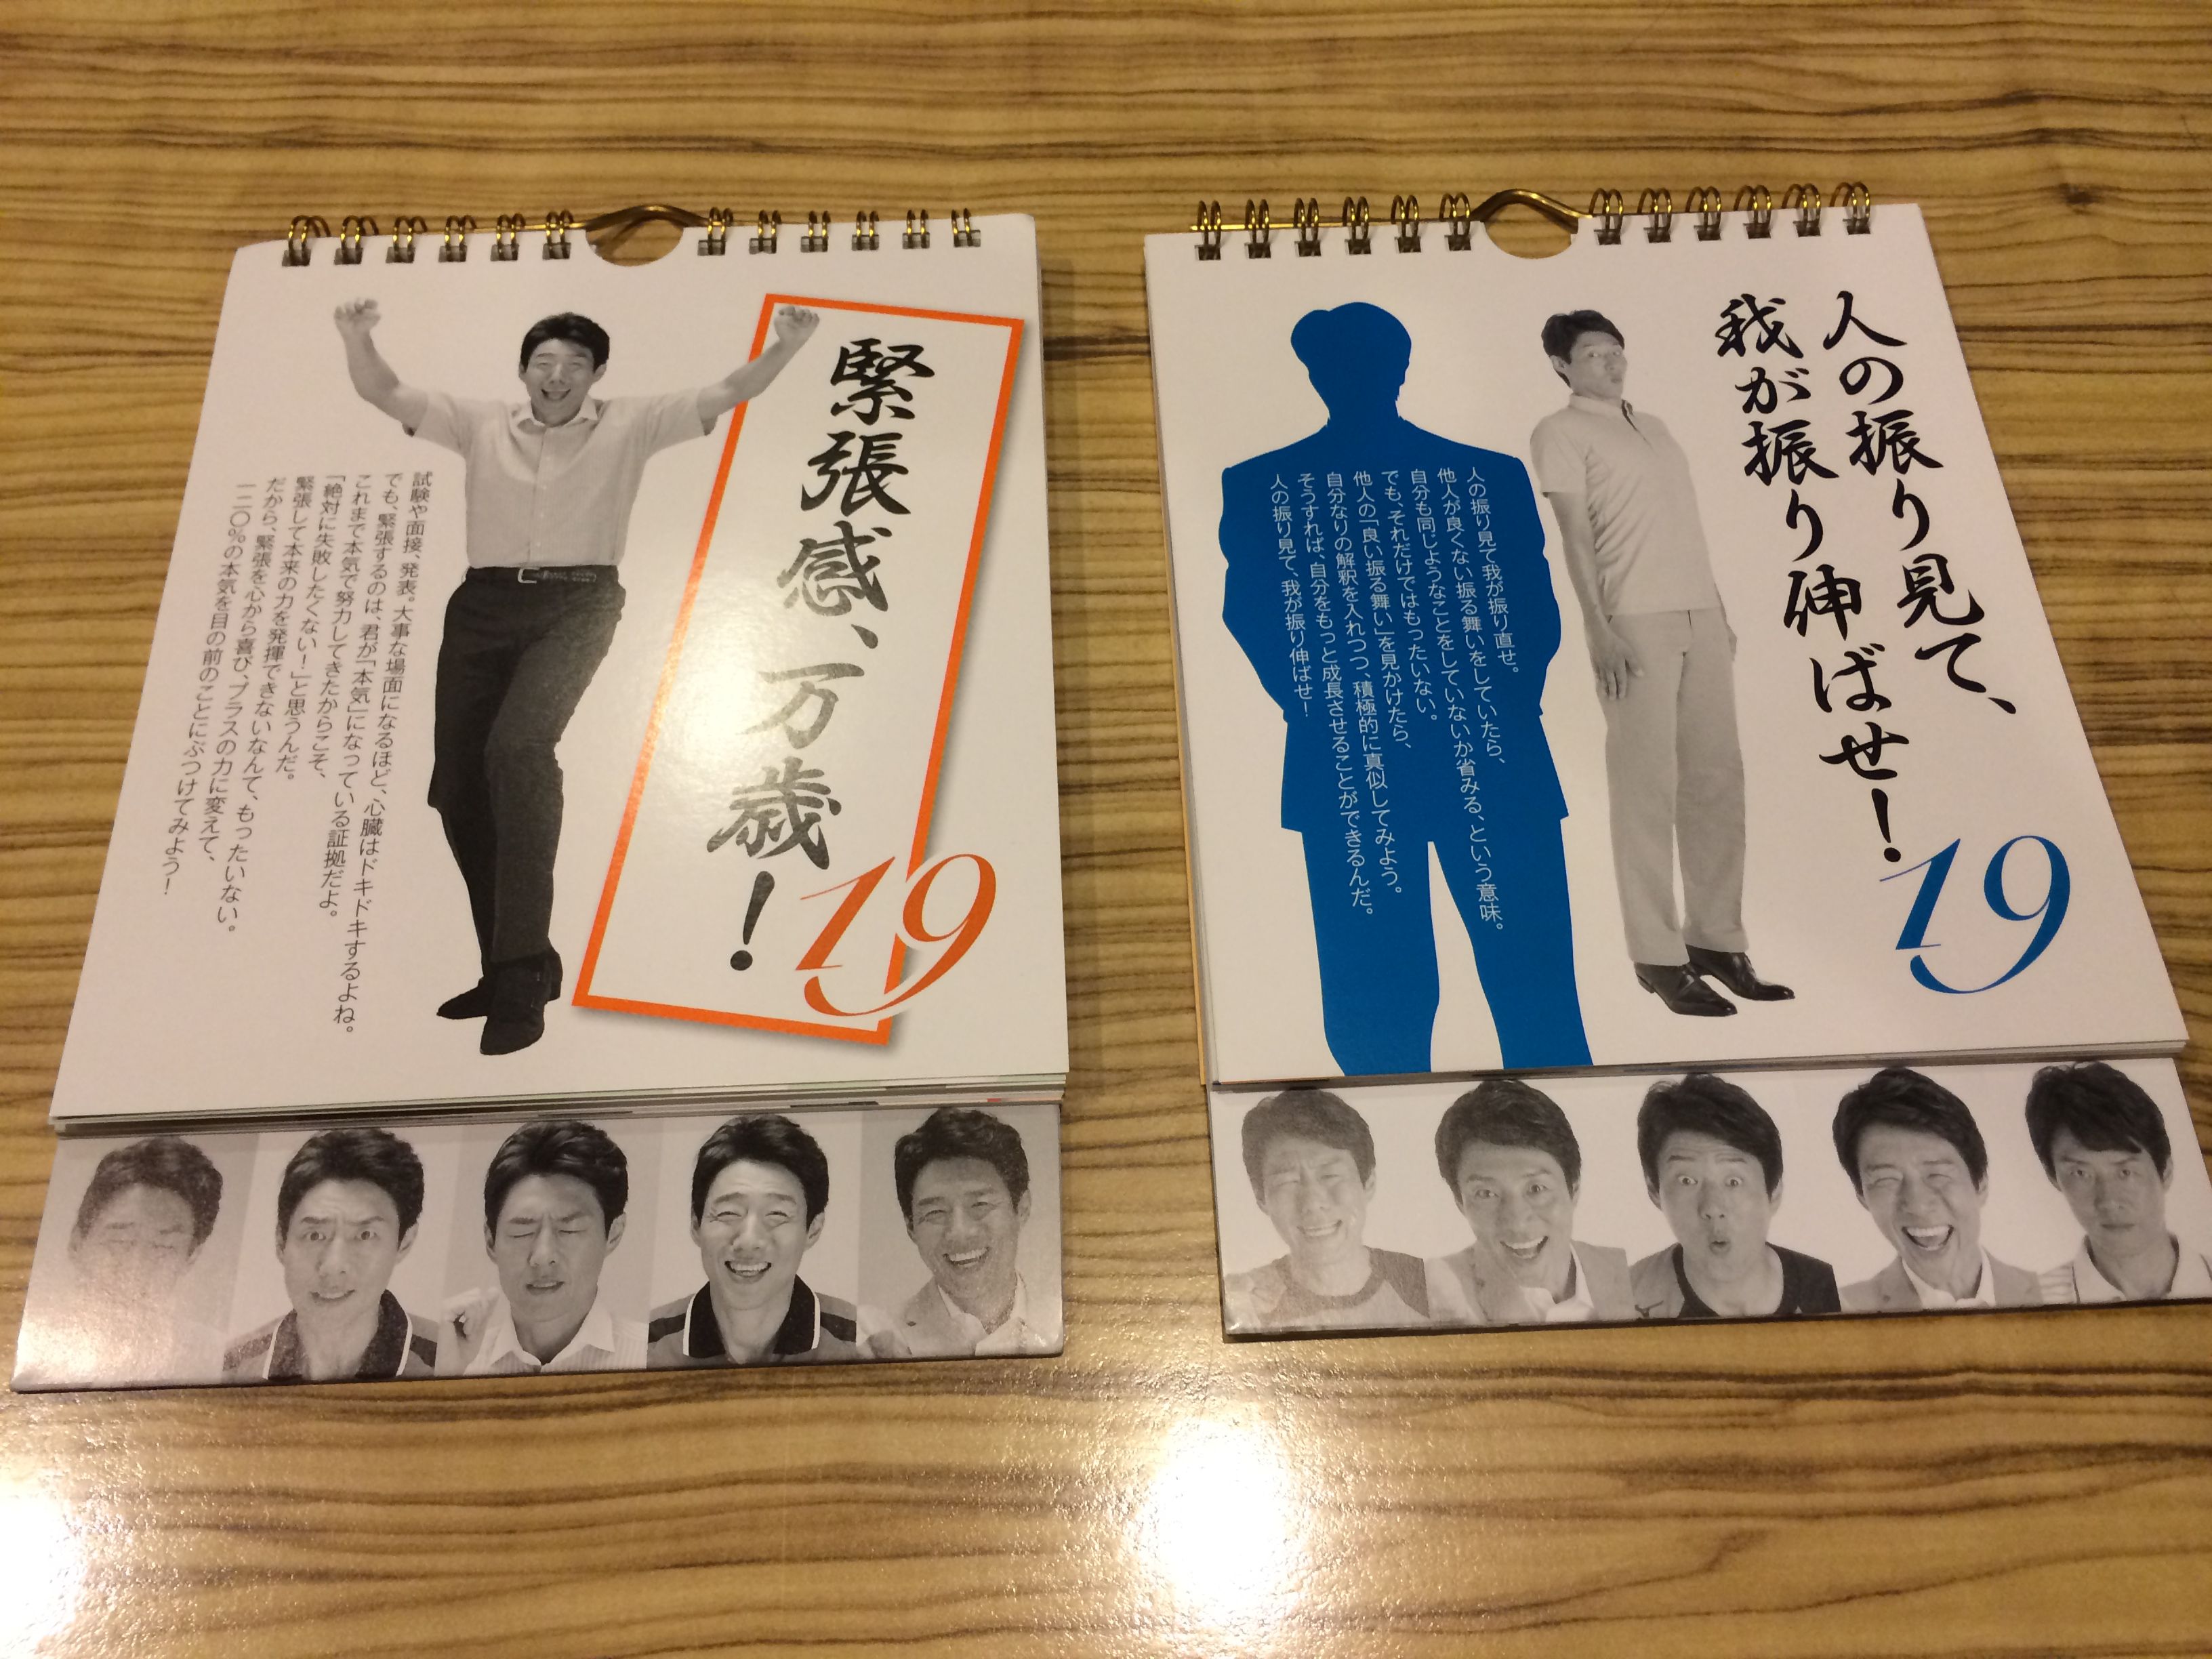 緊張感、万歳!
19
試験や面接、発表。大事な場面になるほど、心臓はドキドキするよね。
でも、緊張するのは、君が「本気」になっている証拠だよ。
これまで本気で努力してきたからこそ、
「絶対に失敗したくない!」と思うんだ。
緊張して本来の力を発揮できないなんて、もったいない。
だから、緊張を心から喜び、プラスの力に変えて、
一二〇%の本気を目の前のことにぶつけてみよう!
人の振り見て、
我が振り伸ばせ!
19
人の振り見て我が振り直せ。
他人が良くない振る舞いをしていたら、
自分も同じようなことをしていないか省みる、という意味。
でも、それだけではもったいない。
他人の「良い振る舞い」を見かけたら、
自分なりの解釈を入れつつ、積極的に真似してみよう。
そうすれば、自分をもっと成長させることができるんだ。
人の振り見て、我が振り伸ばせ!